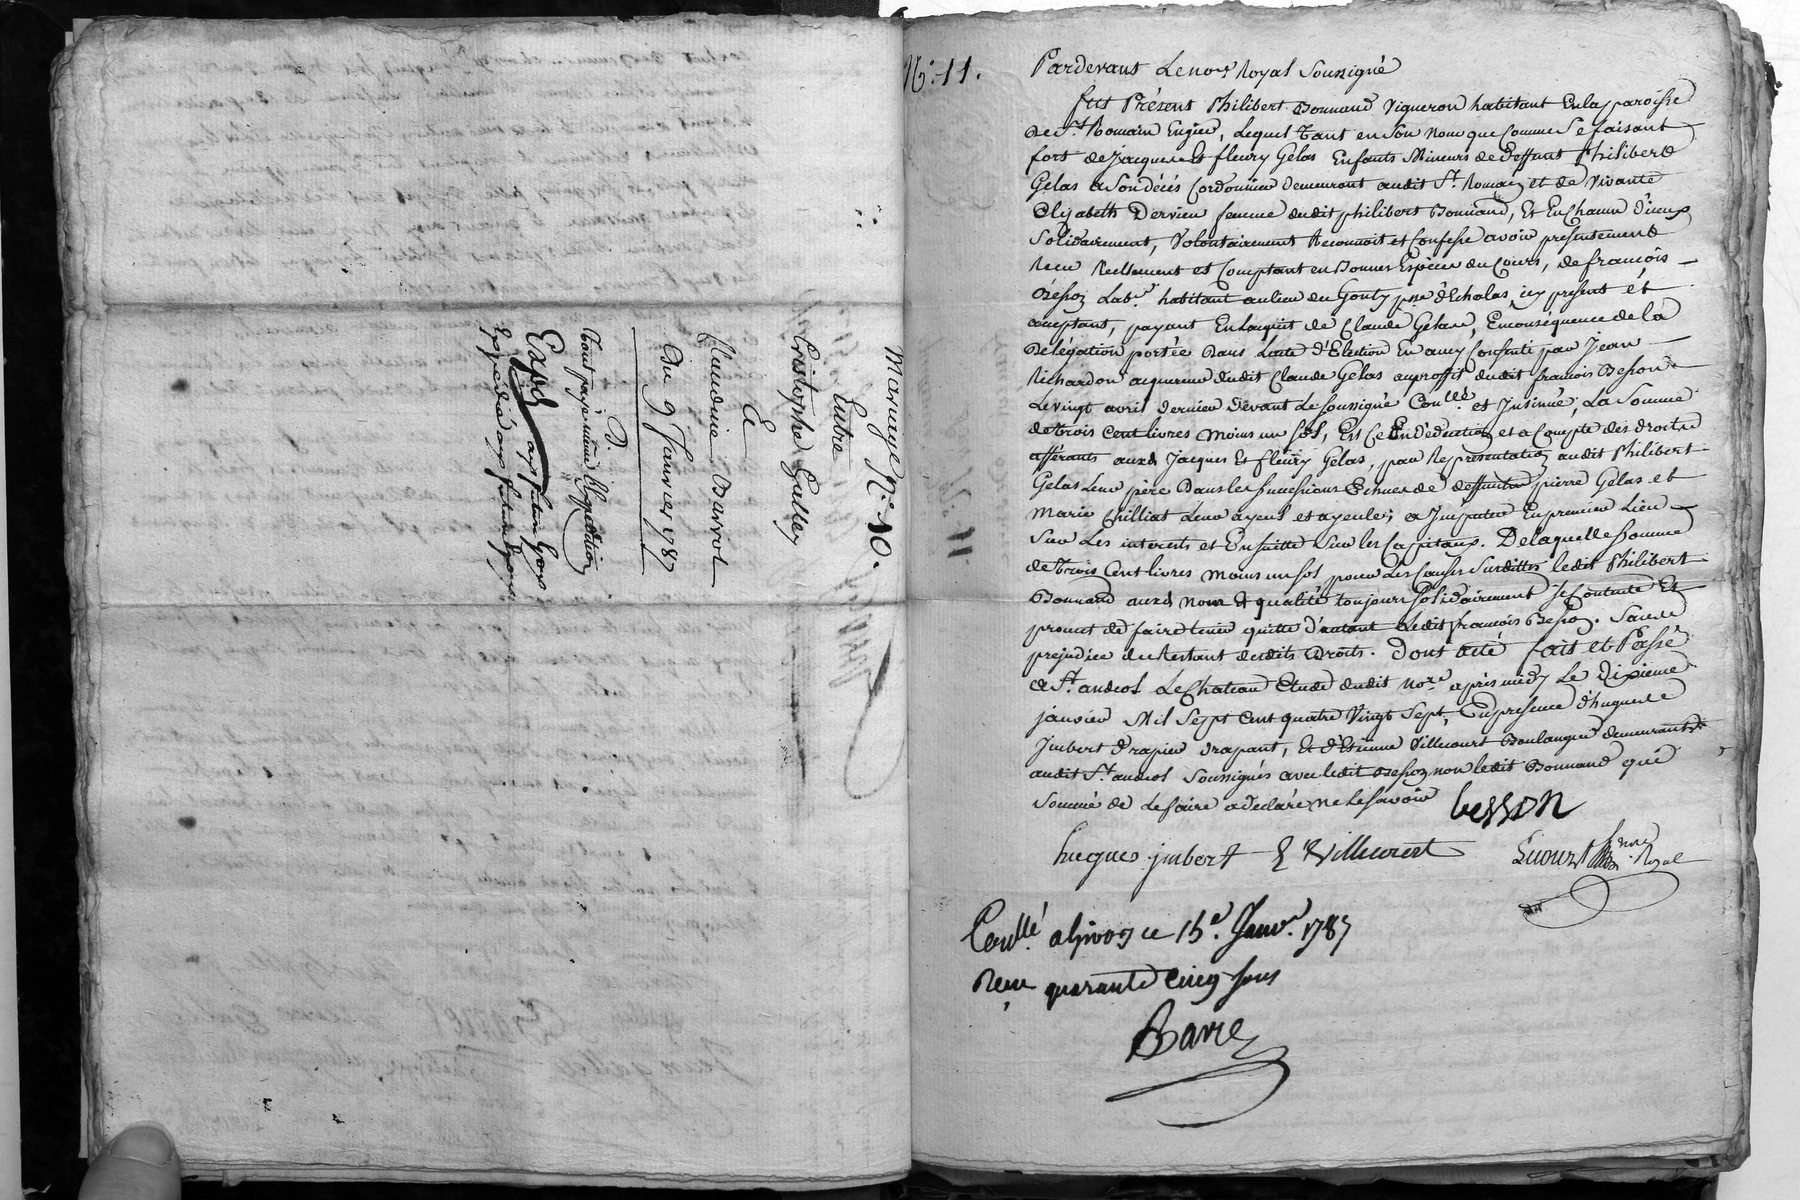 Mariage N.° 10.
Entre
Cristophe Galley
Et
Claudine Barriot
Du 9 Janvier 1787
D.
tout payé même l'Expedition
Exped aux futurs Epoux
N.° 11.
Pardevant Le no.re Royal Soussigné
fut Présent Philibert Bonnand Vigneron habitant En la paroisse
de S.t Romain Engier, Lequel tant en Son nom que Comme Se faisant
fort de Jacques Et fleury Gelas Enfants Mineurs de deffunt Philibert
Gelas a Son décés Cordonnier demeurant audit S.t Romain et de Vivante
Elizabeth Dervieu femme dudit philibert Bonnand, Et En Chacun d'iceux
Solidairement, Volontairement Reconnoit et Confesse avoir presentement
Receu Reellement et Comptant en Bonnes Espèces du Cours, de françois
Besson Lab.r habitant au lieu du Gouty p.sse d'Echalas, icy present et
acceptant, payant En L'acquit de Claude Gelas, En conséquence de la
Délégation portée Dans L'acte d'Election En amy Consenti par Jean
Richardon acquereur dudit Claude Gelas au proffit dudit françois Besson
Le vingt avril dernier devant Le soussigné Con.llé et Insinué, La Somme
de trois Cent livres moins un sol, Et Ce En déduction et a Compte des droits
afférants auxd. Jacques Et fleury Gelas, par Representation audit Philibert
Gelas Leur père Dans les Successions Echues de deffunts pierre Gelas et
Marie Chilliat Leur ayeul et ayeule; a Imputer En premier Lieu
Sur Les interets et Ensuitte Sur les Capitaux. De laquelle Somme
de trois Cent livres moins un sol pour Les Causes Surdittes ledit Philibert
Bonnand auxd. noms Et qualité toujours Solidairement Se Contente Et
promet de faire tenir quitte d'autant Ledit françois Besson. Sans
prejudice du Restant desdits Droits. Dont acte fait et Passé
a S.t andeol Le Chateau Etude dudit No.re après midy Le Dixieme
janvier Mil Sept Cent quatre Vingt Sept, En presence d'hugues
Imbert Drapier drapant, Et d'Etienne Villecourt Boulanger demeurants
audit S.t andeol Soussignés avec ledit Besson non ledit Bonnand que
Sommé de Le faire a declaré ne Le Savoir
besson
hugues jmbert E Villecourt
no.re Royal
Con.llé a Givors ce 15.e Janv.r 1787
Receu quarante cinq sous
Barre